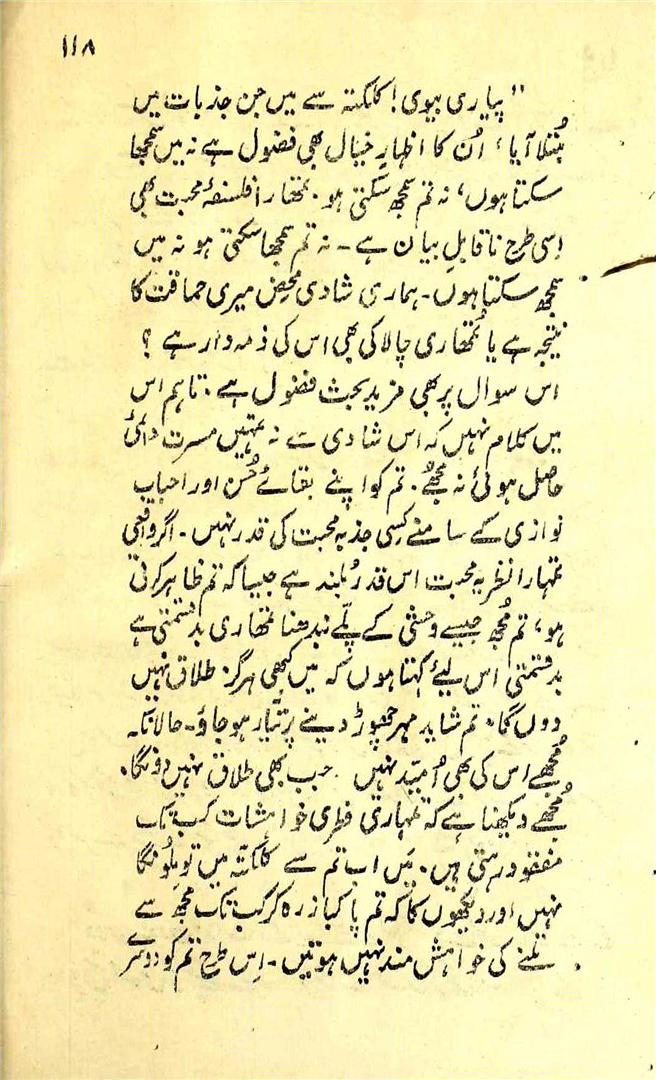 ۱۱۸
"پیاری بیوی! کلکتہ سے میں جن جذبات میں
مُبتلا آیا، اُن کا اظہارِ خیال بھی فضول ہے نہ میں سمجھا
سکتا ہوں، نہ تم سمجھ سکتی ہو۔ تمھارا فلسفۂ محبت بھی
اِسی طرح ناقابلِ بیان ہے۔ نہ تم سمجھا سکتی ہو نہ میں
سمجھ سکتا ہوں۔ ہماری شادی محض میری حماقت کا
نتیجہ ہے یا تُمھاری چالاکی بھی اس کی ذمہ دار ہے؟
اس سوال پر بھی مزید بحث فضول ہے۔ تاہم اس
میں کلام نہیں کہ اس شادی سے نہ تمہیں مسرت دائمی
حاصل ہوئی نہ مجھے۔ تم کو اپنے بقائے حُسن اور احباب
نوازی کے سامنے کسی جذبہ محبت کی قدر نہیں۔ اگر واقعی
تمہارا نظریہ محبت اس قدر بُلند ہے جیسا کہ تم ظاہر کرتی
ہو، تم مُجھ جیسے وحشی کے پلّے بندھنا تمھاری بدقسمتی ہے
بدقسمتی اس لیئے کہتا ہوں کہ میں کبھی ہرگز طلاق نہیں
دوں گا۔ تم شاید مہر چھوڑ دینے پر تیّار ہو جاؤ۔ حالانکہ
مُجھے اس کی بھی اُمیّد نہیں جب بھی طلاق نہیں دونگا۔
مُجھے دیکھنا ہے کہ تمہاری فطری خواہشات کب تک
مفقود رہتی ہیں۔ میں اب تم سے کلکتہ میں تو مِلُونگا
نہیں اور دیکھوں گا کہ تم پاکباز رہ کر کب تک مجھ سے
ملنے کی خواہش مند نہیں ہوتیں۔ اِس طرح تم کو دوسرے